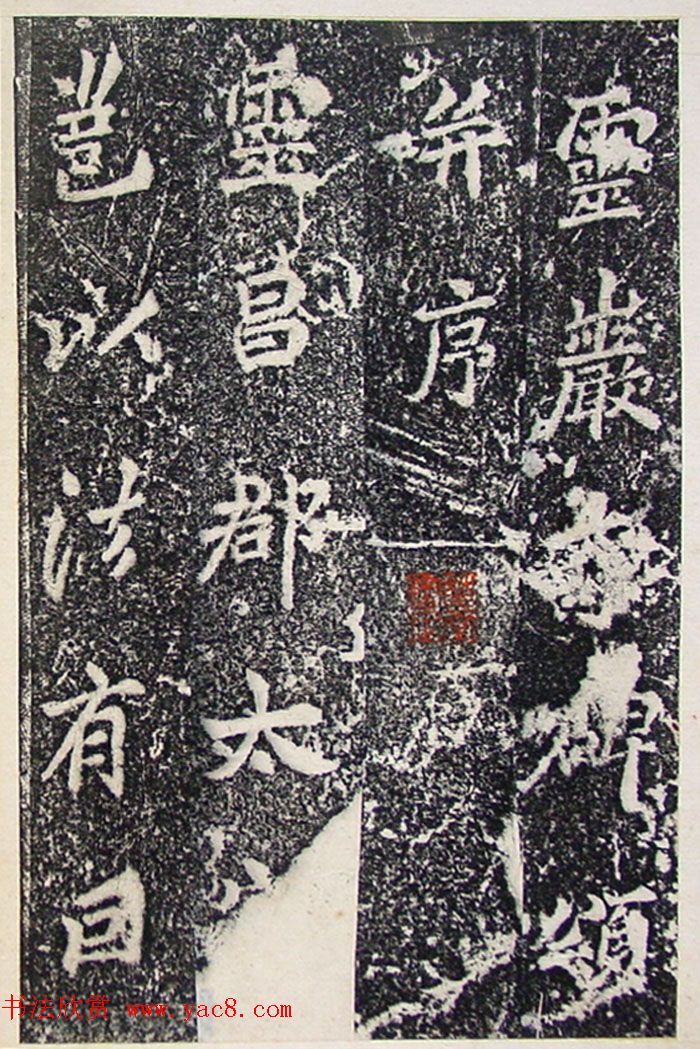 靈巖寺碑頌
并序
靈昌都太
豈以法有回
书法欣赏 www.yac8.com